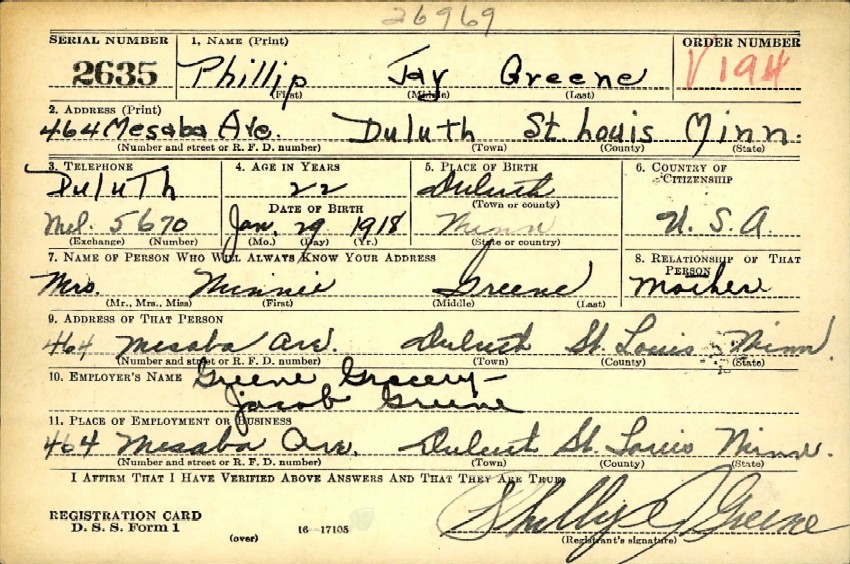 26969
SERIAL NUMBER 1. NAME (Print) ORDER NUMBER
2635 Phillip Jay Greene V194
(First) (Middle) (Last)
2. ADDRESS (Print)
464 Mesaba Ave. Duluth St. Louis Minn.
(Number and street or R. F. D. number) (Town) (County) (State)
3. TELEPHONE 4. AGE IN YEARS 5. PLACE OF BIRTH 6. COUNTRY OF CITIZENSHIP
Duluth 22 Duluth
DATE OF BIRTH (Town or county)
Mel. 5670 Jan. 29 1918 Minn U. S. A.
(Exchange) (Number) (Mo.) (Day) (Yr.) (State or country)
7. NAME OF PERSON WHO WILL ALWAYS KNOW YOUR ADDRESS 8. RELATIONSHIP OF THAT PERSON
Mrs. Minnie Greene Mother
(Mr., Mrs., Miss) (First) (Middle) (Last)
9. ADDRESS OF THAT PERSON
464 Mesaba Ave. Duluth St. Louis Minn.
(Number and street or R. F. D. number) (Town) (County) (State)
10. EMPLOYER'S NAME Greene Grocery—
Jacob Greene
11. PLACE OF EMPLOYMENT OR BUSINESS
464 Mesaba Ave. Duluth St. Louis Minn.
(Number and street or R. F. D. number) (Town) (County) (State)
I AFFIRM THAT I HAVE VERIFIED ABOVE ANSWERS AND THAT THEY ARE TRUE.
REGISTRATION CARD
D. S. S. Form 1 (over) 16—17105 Phillip J Greene
(Registrant's signature)